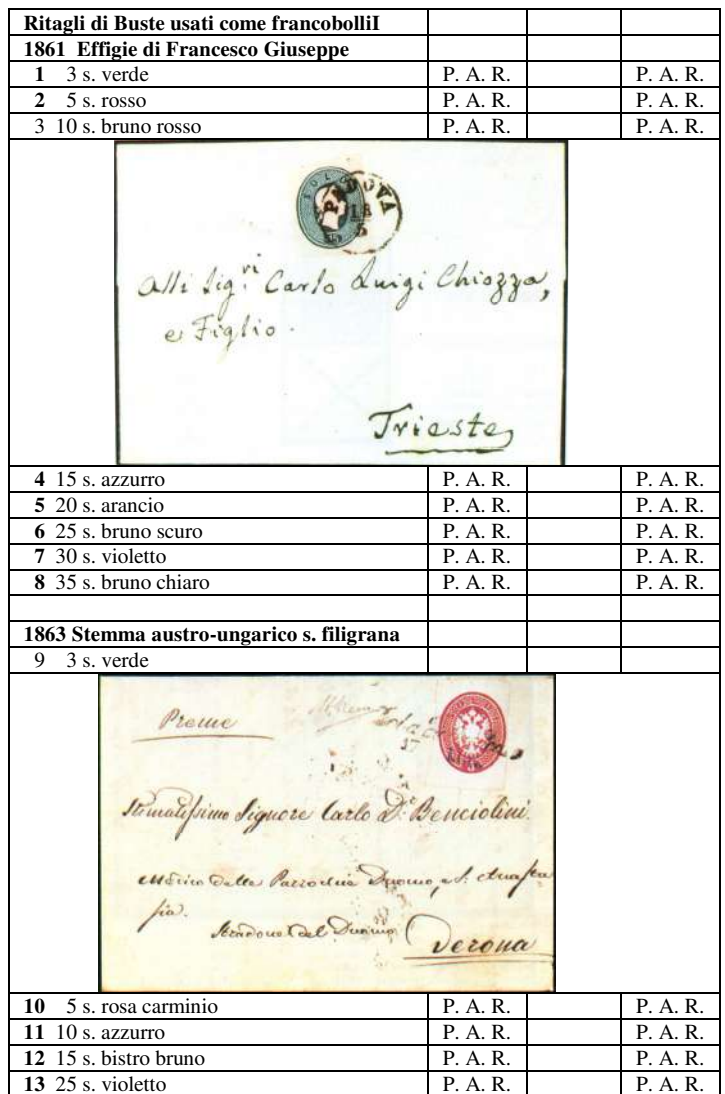 Ritagli di Buste usati come francobolliI
1861 Effigie di Francesco Giuseppe
1 3 s. verde P. A. R. P. A. R.
2 5 s. rosso P. A. R. P. A. R.
3 10 s. bruno rosso P. A. R. P. A. R.
PADOVA
18
5
Alli Sig.ri Carlo Luigi Chiozza,
e Figlio.
Trieste
4 15 s. azzurro P. A. R. P. A. R.
5 20 s. arancio P. A. R. P. A. R.
6 25 s. bruno scuro P. A. R. P. A. R.
7 30 s. violetto P. A. R. P. A. R.
8 35 s. bruno chiaro P. A. R. P. A. R.
1863 Stemma austro-ungarico s. filigrana
9 3 s. verde
Preme
Signore Carlo Dr. Benciolini
Duomo, e S.
Stradone del Duomo
Verona
10 5 s. rosa carminio P. A. R. P. A. R.
11 10 s. azzurro P. A. R. P. A. R.
12 15 s. bistro bruno P. A. R. P. A. R.
13 25 s. violetto P. A. R. P. A. R.